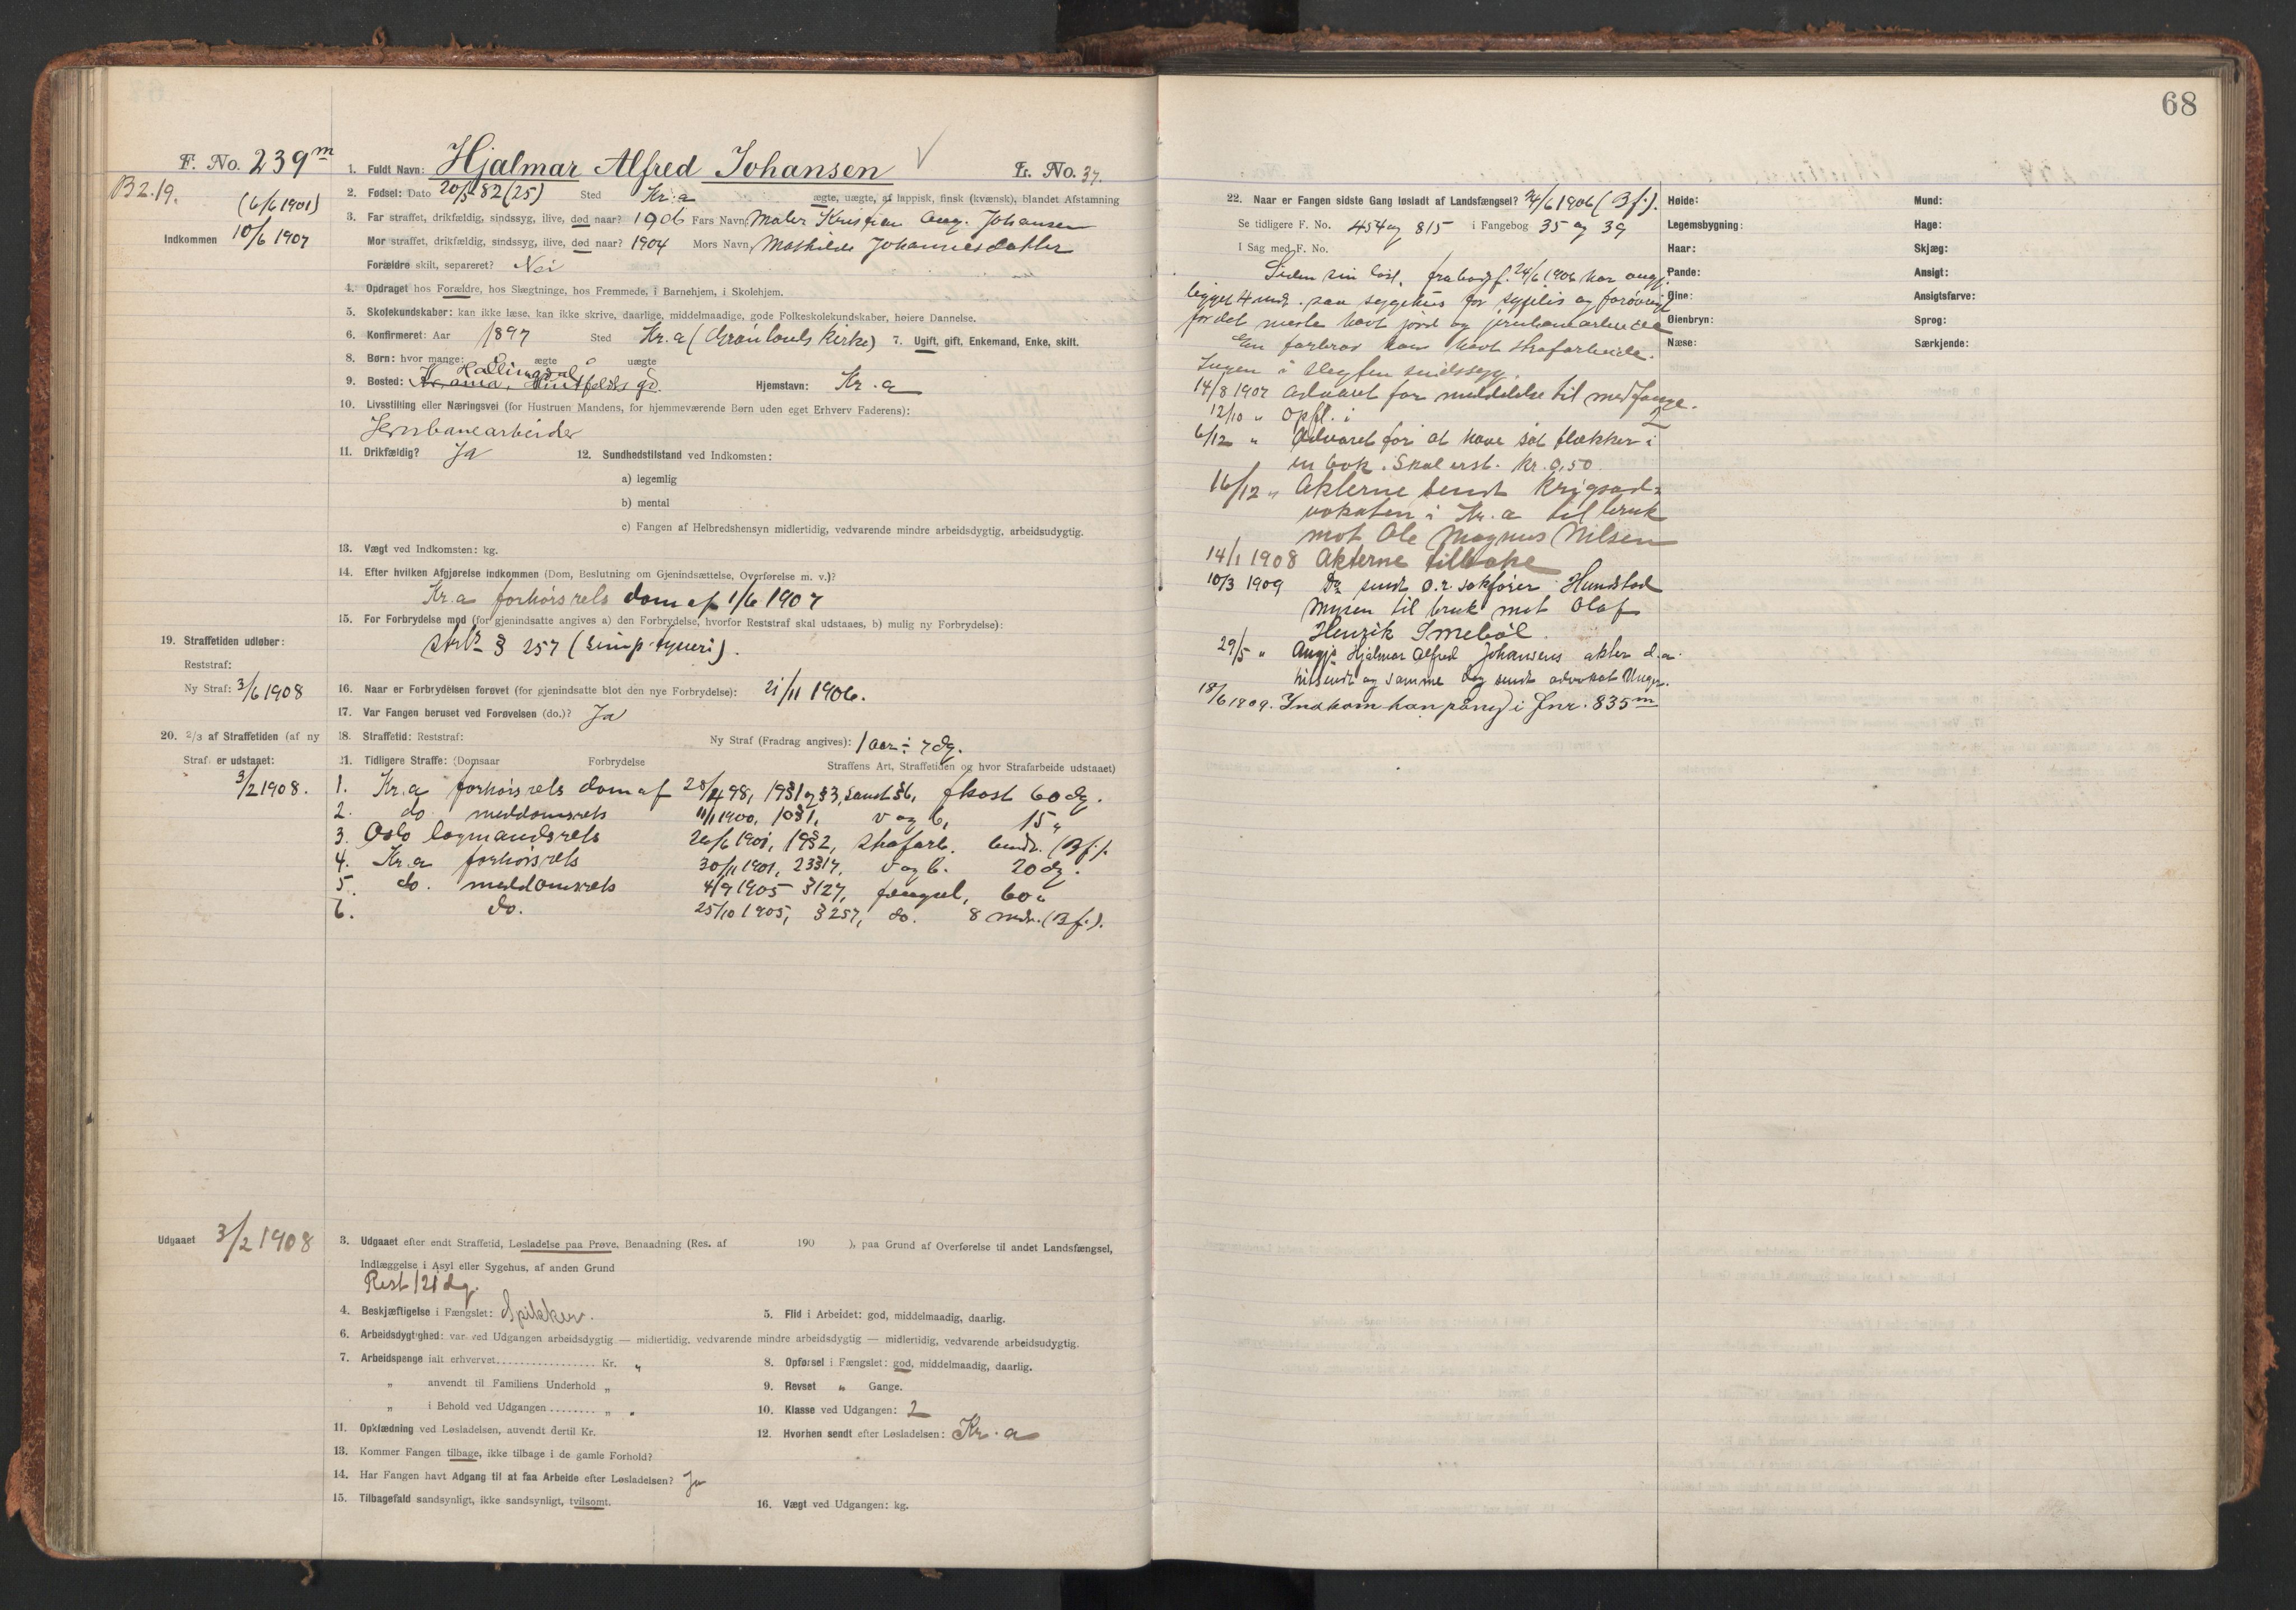 68
F. No. 239m
B 2.19.
(6/6 1901)
Indkommen 10/6 1907
1. Fuldt Navn: Hjalmar Alfred Johansen L. No. 37.
2. Fødsel: Dato 20/5 82 (25) Sted Kr.a ægte, uægte, af lappisk, finsk (kvænsk), blandet Afstamning
3. Far straffet, drikfældig, sindssyg, ilive, død naar? 1906 Fars Navn: Maler Kristian Aug. Johansen
Mor straffet, drikfældig, sindssyg, ilive, død naar? 1904 Mors Navn Mathilde Johannesdatter
Forældre skilt, separeret? Nei
4. Opdraget hos Forældre, hos Slægtninge, hos Fremmede, i Barnehjem, i Skolehjem.
5. Skolekundskaber: kan ikke læse, kan ikke skrive, daarlige, middelmaadige, gode Folkeskolekundskaber, høiere Dannelse.
6. Konfirmeret: Aar 1897 Sted Kr.a (Grønlands Kirke) 7. Ugift, gift, Enkemand, Enke, skilt.
8. Børn: hvor mange: 0 ægte 0 uægte
Hallingdal
9. Bosted: gd. Hjemstavn: Kr.a
10. Livsstilling eller Næringsvei (for Hustruen Mandens, for hjemmeværende Børn uden eget Erhverv Faderens):
Jernbanearbeider
11. Drikfældig? Ja 12. Sundhedstilstand ved Indkomsten:
a) legemlig
b) mental
c) Fangen af Helbredshensyn midlertidig, vedvarende mindre arbeidsdygtig, arbeidsudygtig.
13. Vægt ved Indkomsten: kg.
14. Efter hvilken Afgjørelse indkommen (Dom, Beslutning om Gjenindsættelse, Overførelse m. v.)?
Kr.a forhørsrets dom af 1/6 1907
15. For Forbrydelse mod (for gjenindsatte angives a) den Forbrydelse, hvorfor Reststraf skal udstaaes, b) mulig ny Forbrydelse):
§ 257 (simp. tyveri).
19. Straffetiden udløber:
Reststraf:
Ny Straf: 3/6 1908
16. Naar er Forbrydelsen forøvet (for gjenindsatte blot den nye Forbrydelse): 21/11 1906.
17. Var Fangen beruset ved Forøvelsen (do.)? Ja
20. 2/3 af Straffetiden (af ny
Straf er udstaaet:
3/2 1908.
18. Straffetid: Reststraf: Ny Straf (Fradrag angives): 1 aar ÷ 7 dg.
21. Tidligere Straffe: (Domsaar Forbrydelse Straffens Art, Straffetiden og hvor Strafarbeide udstaaet)
1. Kr.a forhørsrets dom af 28/4 98, 19 § 1 og § 3, samt § 6, fkost 60 dg.
2. do meddomsrets 11/1 1900, 10 § 1, v og b, 15 "
3. Oslo lagmandsrets 26/6 1901, 19 § 2, strafarb. (Bf.).
4. Kr.a forhørsrets 30/11 1901, 23 § 17, v og b. 20 dg.
5. do. meddomsrets 4/9 1905 § 127, fængsel, 60 "
6. do. 25/10 1905, § 257, do. 8 mdr. (Bf.).
Udgaaet 3/2 1908
3. Udgaaet efter endt Straffetid, Løsladelse paa Prøve, Benaadning (Res. af 190 ), paa Grund af Overførelse til andet Landsfængsel,
Indlæggelse i Asyl eller Sygehus, af anden Grund
Rest 121 dg.
4. Beskjæftigelse i Fængslet: Spikker. 5. Flid i Arbeidet: god, middelmaadig, daarlig.
6. Arbeidsdygtighed: var ved Udgangen arbeidsdygtig — midlertidig, vedvarende mindre arbeidsdygtig — midlertidig, vedvarende arbeidsudygtig.
7. Arbeidspenge ialt erhvervet................. Kr. " 8. Opførsel i Fængslet: god, middelmaadig, daarlig.
" anvendt til Familiens Underhold " 9. Revset " Gange.
" i Behold ved Udgangen ........ " " 10. Klasse ved Udgangen: 2
11. Opklædning ved Løsladelsen, anvendt dertil Kr. 12. Hvorhen sendt efter Løsladelsen: Kr.a
13. Kommer Fangen tilbage, ikke tilbage i de gamle Forhold?
14. Har Fangen havt Adgang til at faa Arbeide efter Løsladelsen? Ja
15. Tilbagefald sandsynligt, ikke sandsynligt, tvilsomt. 16. Vægt ved Udgangen: kg.
22. Naar er Fangen sidste Gang løsladt af Landsfængsel? 24/6 1906 (Bf.).
Se tidligere F. No. 454 og 815 i Fangebog 35 og 39
I Sag med F. No.
Siden sin løsl. fra bodsf. 24/6 1906 har angj.
ligget 4 mdr. paa sygehus for syfilis og forøvrigt
for det meste havt jord og jernbanearbeide
En farbror har havt strafarbeide.
Ingen i slegten sindssyg.
14/8 1907 advaret for meddelelse til medfange.
12/10 " Opfl. i 2
6/12 " Advaret for at have sat flekker i
en bok. Skal erst. Kr. 0,50.
16/12 " Akterne sendt Krigsad-
vokaten i Kr.a til bruk
mot Ole Magnus Nilsen
14/1 1908 Akterne tilbake
10/3 1909 Do sendt o.r. sakfører Hundstad
Mysen til bruk mot Olaf
Henrik
29/5 " Angj. Hjalmar Alfred Johansens akter d.a.
tilsendt og samme dag sendt advokat
18/6 1909. Indkom han paany i fnr. 835m
Høide: Mund:
Legemsbygning: Hage:
Haar: Skjæg:
Pande: Ansigt:
Øine: Ansigtsfarve:
Øienbryn: Sprog:
Næse: Særkjende: